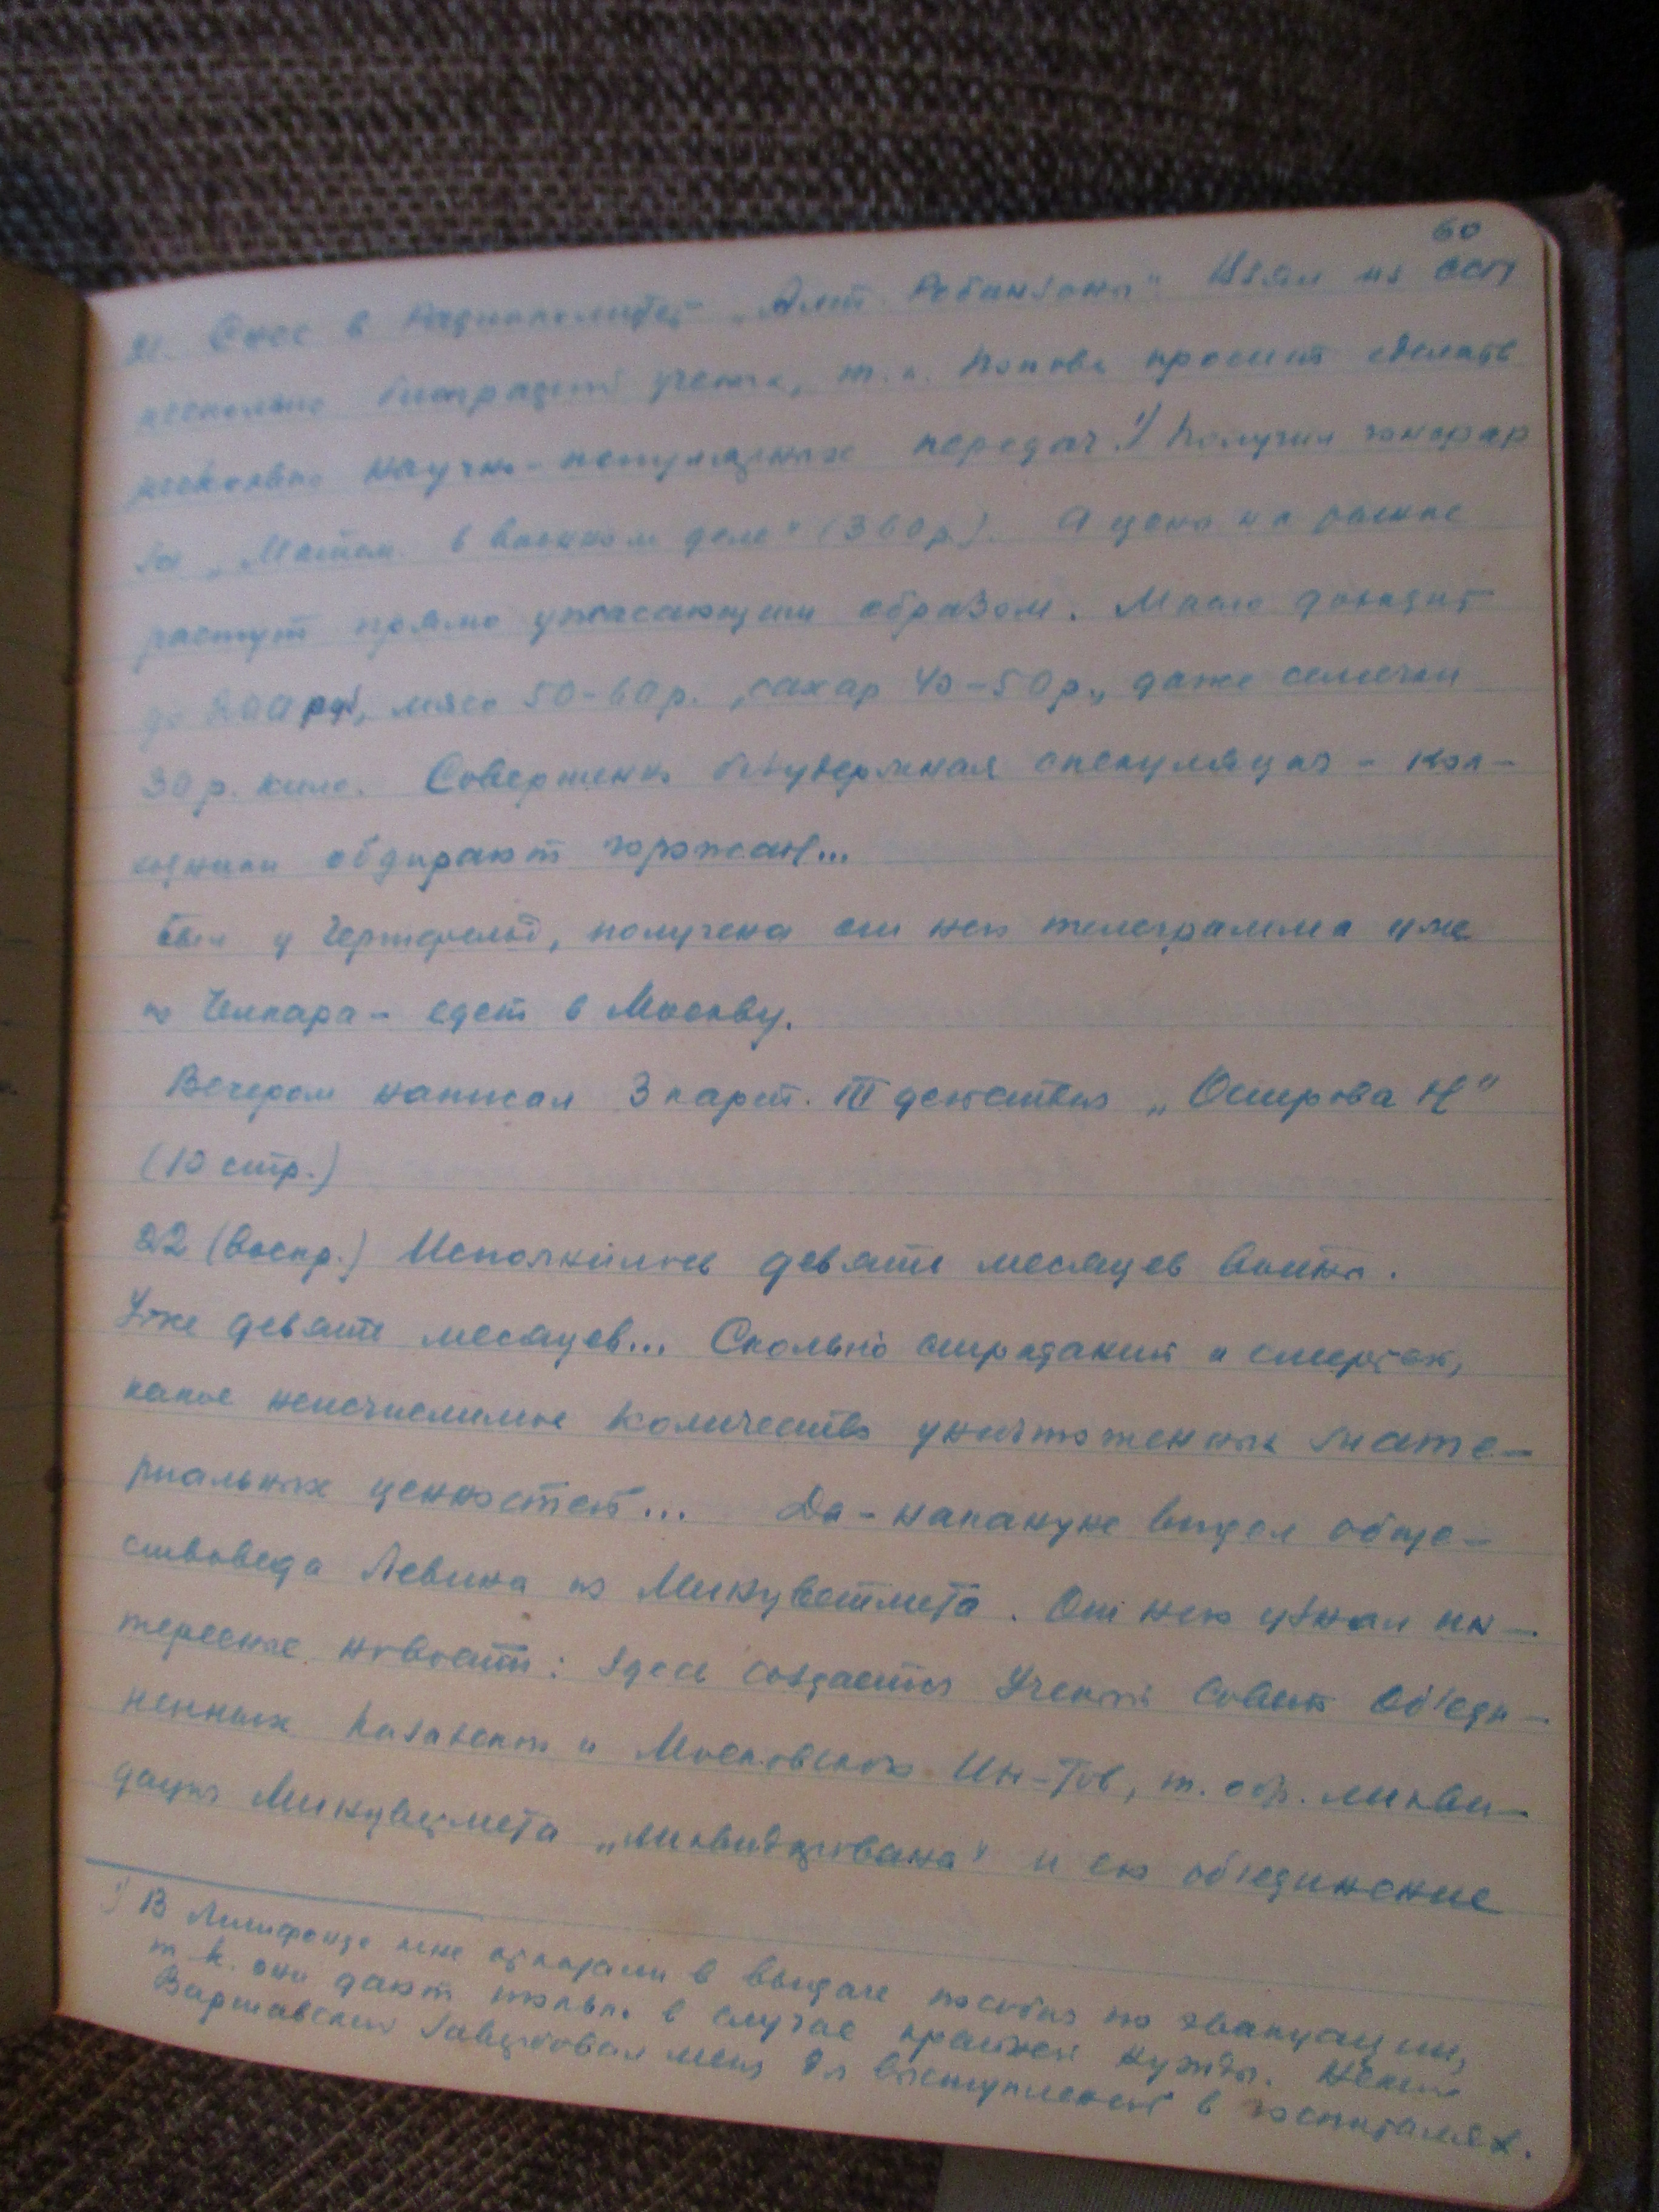 60
21. Снес в Радиокомитет „Алт. Робинзоны“. Взял из
несколько биографий ученых, т.к. Попова просит сделать
несколько научно-популярных передач.¹) Получил гонорар
за „Матем. в военном деле“ (360 р.). А цены на рынке
растут прямо ужасающим образом. Масло доходит
до 200 руб, мясо 50-60 р., сахар 40-50 р., даже семечки
30 р. кило. Совершенно безудержная спекуляция - кол-
хозники обдирают горожан...
Был у Гертфельд, получена от него телеграмма уже
из Чкалова - едет в Москву.
Вечером написал 3 карт. III действия „Острова Н“
(10 стр.)
22 (воскр.) Исполнилось девять месяцев войны.
Уже девять месяцев... Сколько страданий и смертей,
какое неисчислимое количество уничтоженных мате-
риальных ценностей... Да - накануне видел обще-
ствоведа Левина из Минцветмета. От него узнал ин-
тересные новости: здесь создается Ученый Совет Об'еди-
ненных Казахского и Московского Ин-тов, т. обр. ликви-
дация Минцветмета „ликвидирована“ и его об'единение
¹) В Литфонде мне отказали в выдаче пособия по эвакуации,
т.к. они дают только в случае крайней нужды. Некий
Варшавский завербовал меня для выступлений в госпиталях.